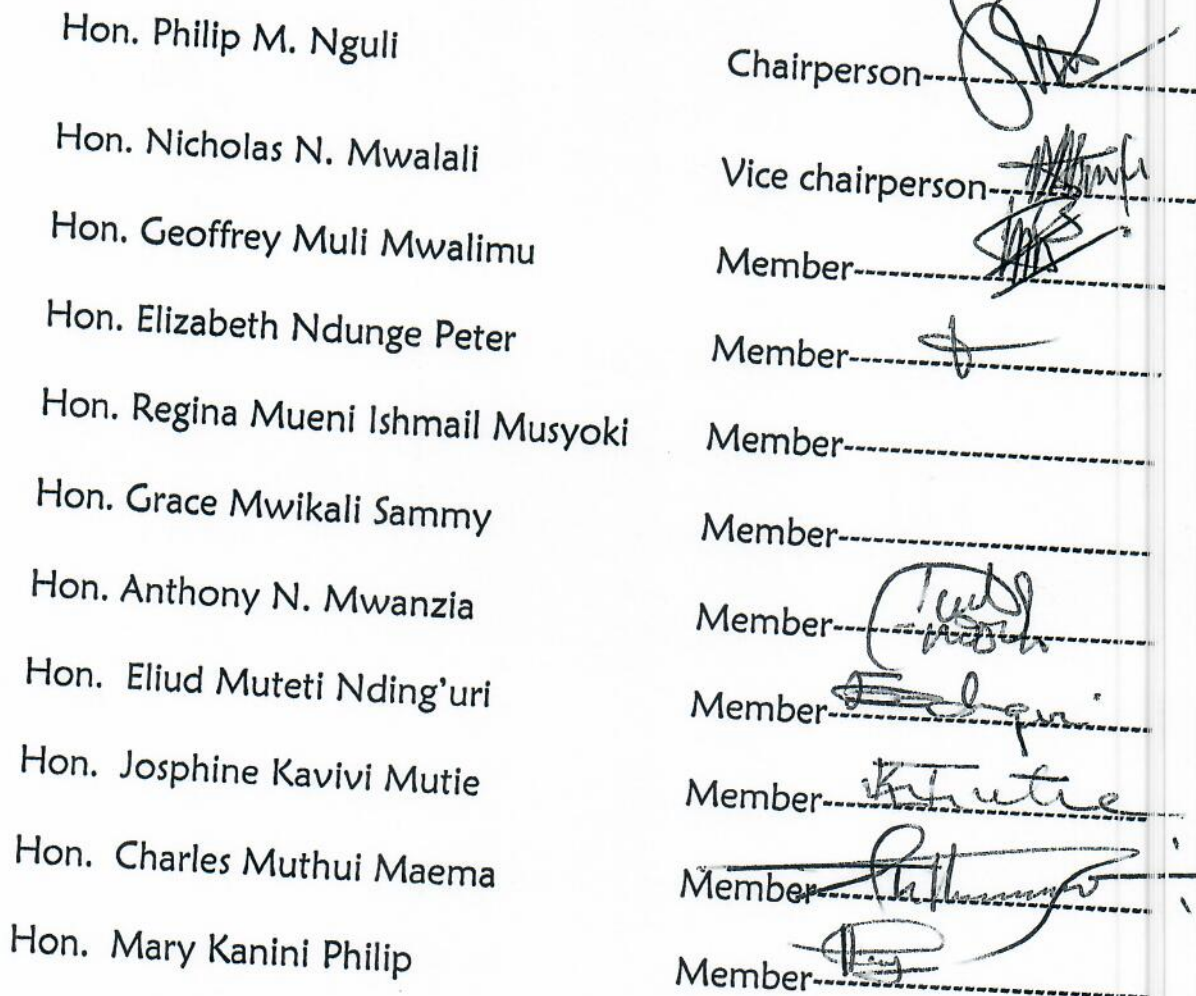 Hon. Philip M. Nguli Chairperson--------------------
Hon. Nicholas N. Mwalali Vice chairperson--------------------
Hon. Geoffrey Muli Mwalimu Member--------------------
Hon. Elizabeth Ndunge Peter Member--------------------
Hon. Regina Mueni Ishmail Musyoki Member--------------------
Hon. Grace Mwikali Sammy Member--------------------
Hon. Anthony N. Mwanzia Member--------------------
Hon. Eliud Muteti Nding'uri Member--------------------
Hon. Josphine Kavivi Mutie Member--------------------
Hon. Charles Muthui Maema Member--------------------
Hon. Mary Kanini Philip Member--------------------